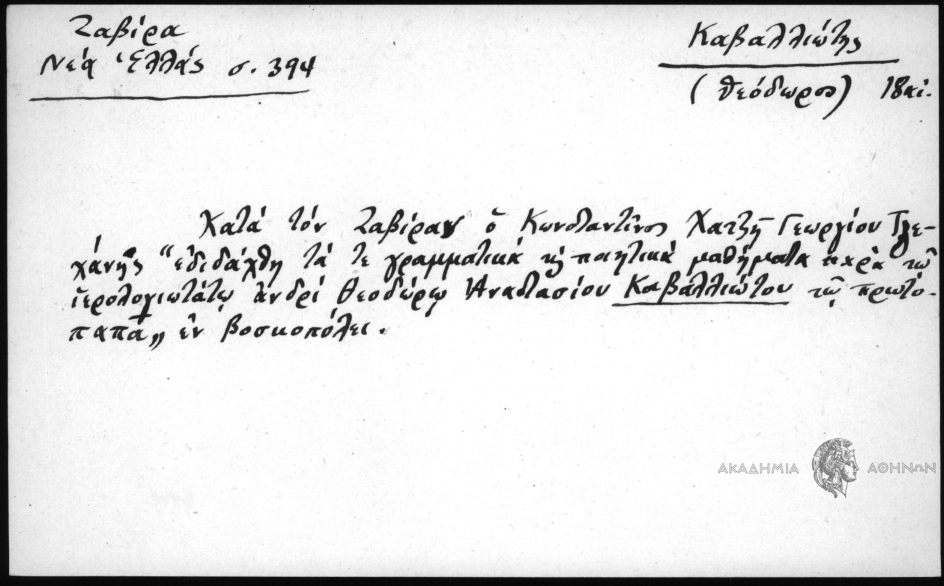 Ζαβίρα
Νέα Ἑλλάς σ. 394
Καβαλλιώτης
(Θεόδωρος) 18 αἰ.
Κατά τόν Ζαβίραν ὁ Κωνσταντῖνος Χατζῆ Γεωργίου Τζε-
χάνης "ἐδιδάχθη τά τε γραμματικά καί ποιητικά μαθήματα παρά τῷ
ἱερολογιωτάτῳ ἀνδρί Θεοδώρῳ Ἀναστασίου Καβαλλιώτου τῷ πρωτο-
παπᾷ„ ἐν Βοσκοπόλει.
ΑΚΑΔΗΜΙΑ ΑΘΗΝΩΝ